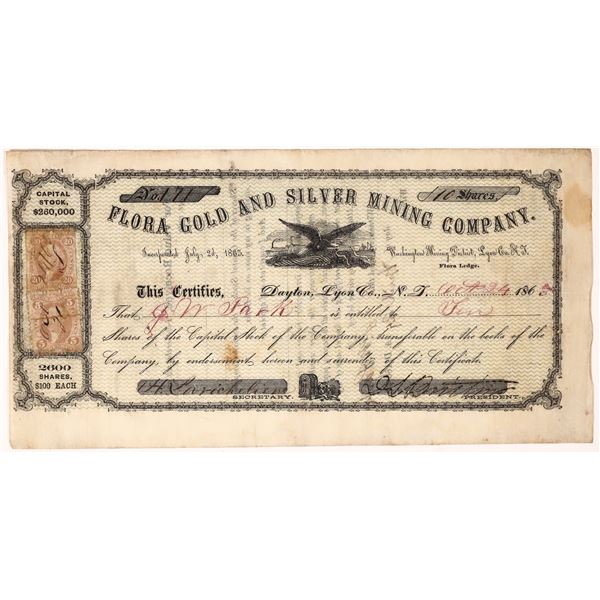 CAPITAL
STOCK,
$260,000
No. 171
10 Shares.
FLORA GOLD AND SILVER MINING COMPANY.
Incorporated July 2d, 1863.
Washington Mining District, Lyon Co. N. T.
Flora Ledge.
This Certifies, Dayton, Lyon Co., N. T. Oct 24 1863
That G W Park is entitled to Ten
Shares of the Capital Stock of the Company, Transferable on the books of the
Company, by endorsement hereon and surrender of this Certificate.
2600
SHARES,
$100 EACH
SECRETARY.
PRESIDENT.
20
20
5
5